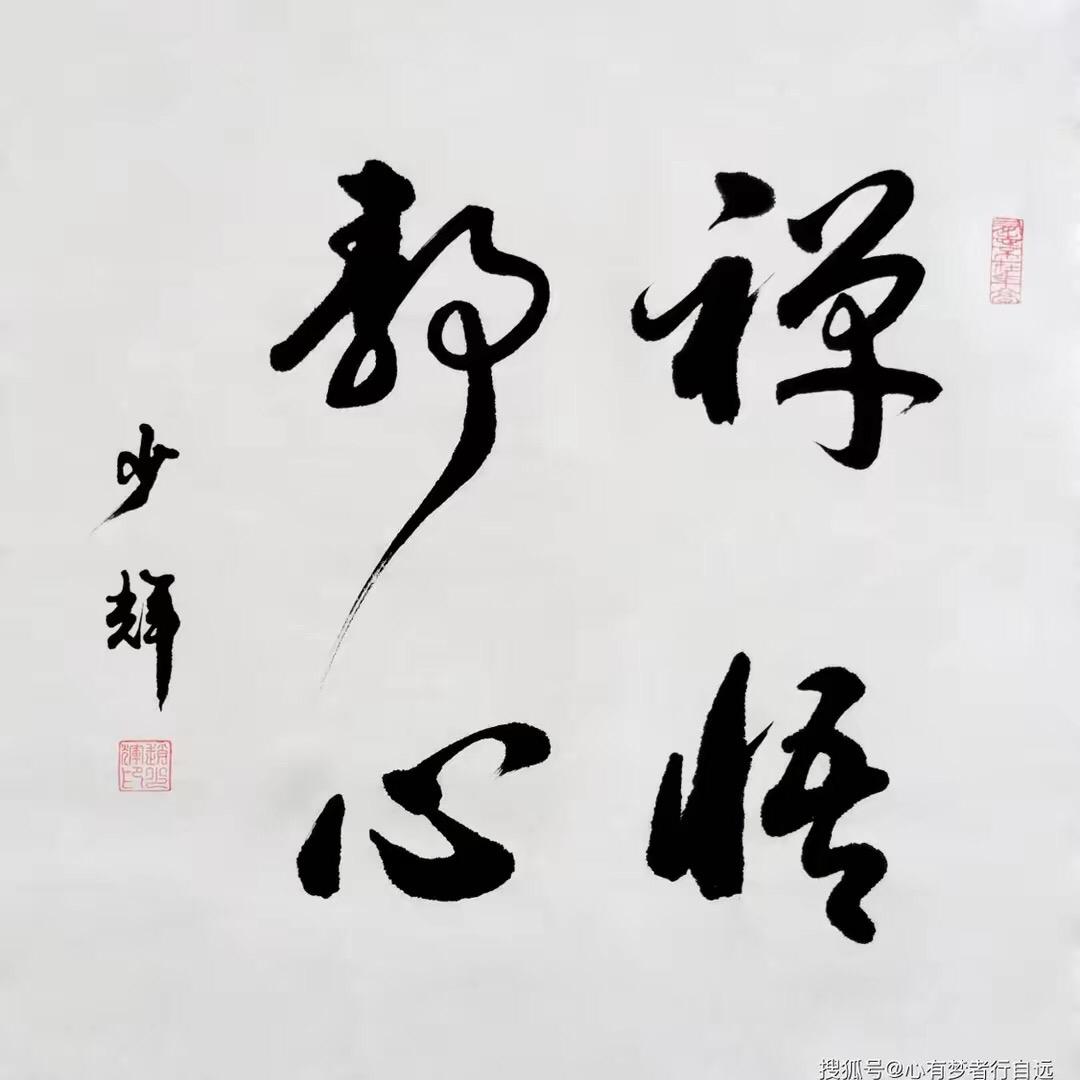 禅悟
静心
少辉
搜狐号@心有梦者行自远